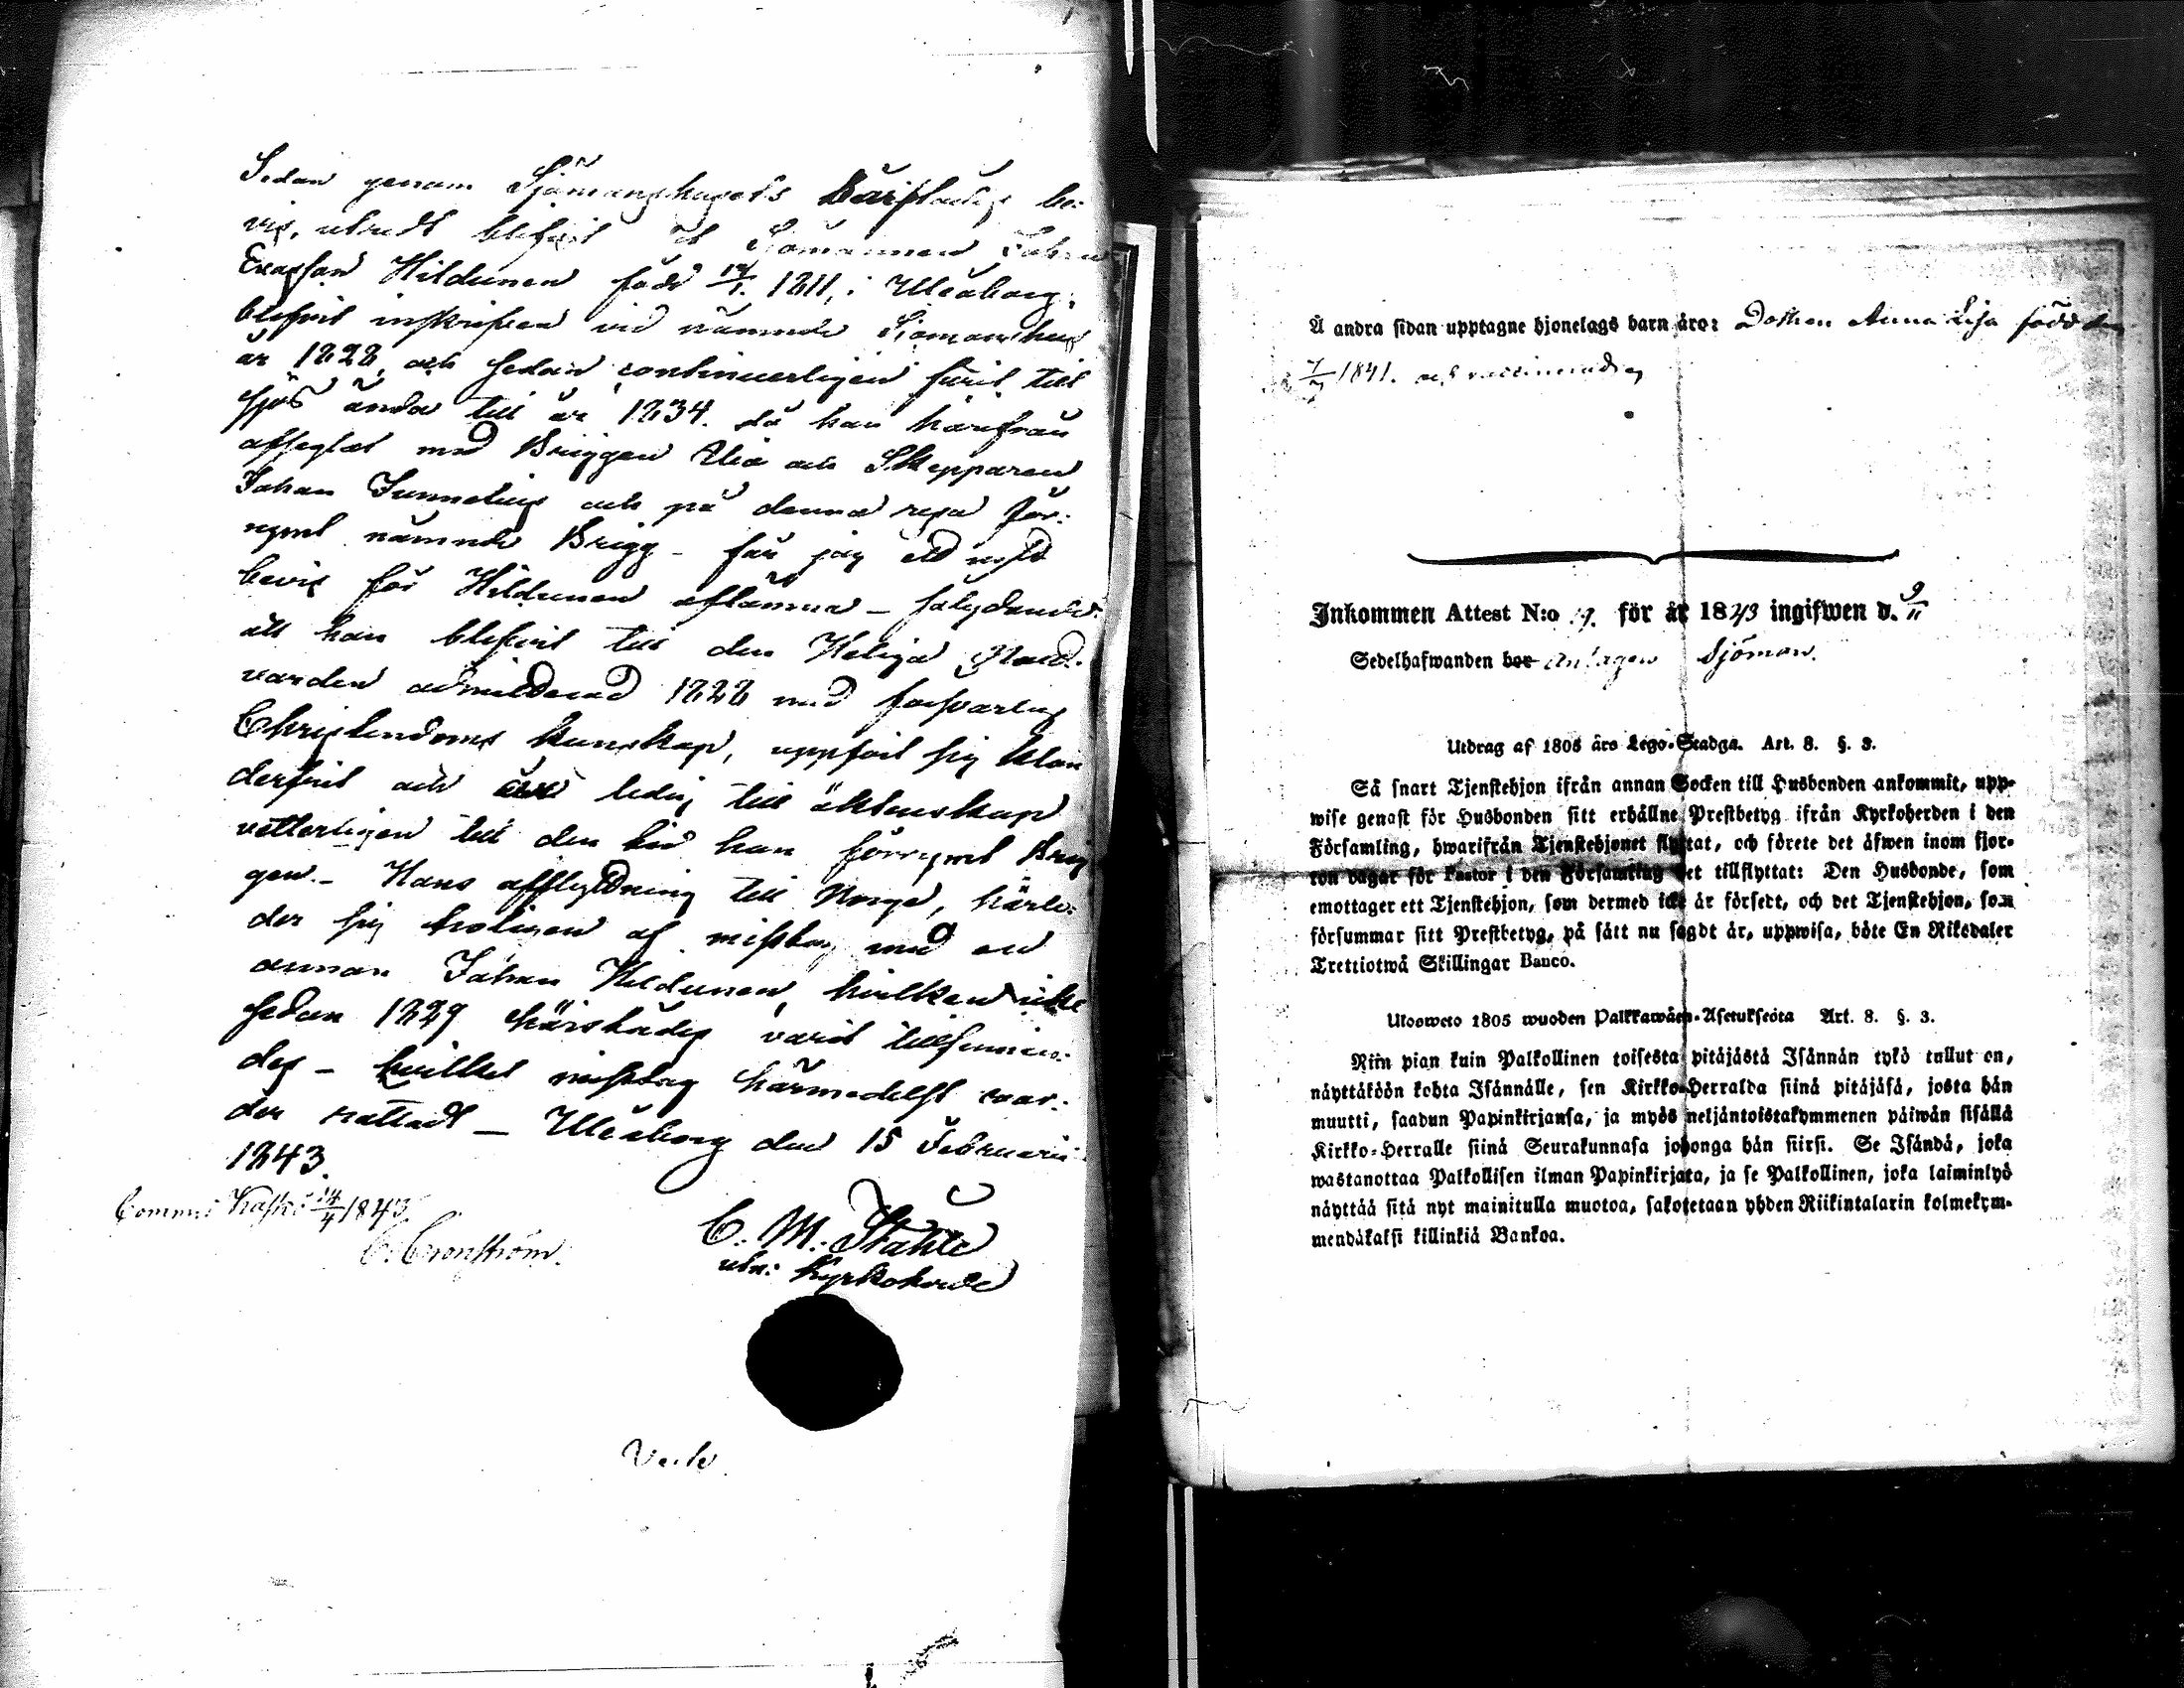 Sedan genom Sjömanshusets härstädes be-
vis, utredt blifvit att Sjömannen Johan
Eraksson Hildunen född 1811, i Uleåborg,
blifvit inskrifven vid nämnde Sjömanshus
år 1828, och sedan continuerligen farit till
sjös ända till år 1834. då han härifrån
afseglat med Briggen och Skepparen
Johan Junnelius och på denna resa för-
rymt nämnde Brigg - får jag ett nytt
bevis för Hildunen aflämna - salydande:
att han blifvit till den Heliga Natt-
varden admitterad 1828 med försvarlig
Christendoms kunskap, uppfört sig klan
derfrit och är ledig till äktenskap
vetterligen till den tid han förrymt Brig
gen. - Hans afflyttning till Norge, härle-
der sig troligen af misstag med en
annan Johan Hildunen, hvilken icke
sedan 1829 härstädes varit tillfinnan-
des - hvilket misstag härmedelst var-
der rättadt - Uleåborg den 15 Februarii
1843.
Kaskö 14/4 1843
C. Cronström.
C. M. Ståhle
Kyrkoherde
Å andra sidan upptagne hjonelags barn äro: Dottren Anna Lisa född den
1841. och vaccinerad
Inkommen Attest N:o 19. för år 1843 ingifwen d. 9/11
Sedelhafwanden bor Antagen Sjöman.
Utdrag af 1805 års Lego-Stadga. Art. 8. §. 3.
Så snart Tjenstehjon ifrån annan Socken till Husbonden ankommit, upp-
wise genast för Husbonden sitt erhållne Prestbetyg ifrån Kyrkoherden i den
Församling, hwarifrån Tjenstehjonet flyttat, och förete det äfwen inom fjor-
ton dagar för Pastor i den Församling det tillflyttat: Den Husbonde, som
emottager ett Tjenstehjon, som dermed icke är försedt, och det Tjenstehjon, som
försummar sitt Prestbetyg, på sätt nu sagdt är, uppwisa, böte En Riksdaler
Trettiotwå Skillingar Banco.
Ulosweto 1805 wuoden Palkkawäen-Asetuksesta Art. 8. §. 3.
Niin pian kuin Palkollinen toisesta pitäjästä Isännän tykö tullut on,
näyttäköön kohta Isännälle, sen Kirkko-Herralda siinä pitäjäsä, josta hän
muutti, saadun Papinkirjansa, ja myös neljäntoistakymmenen päiwän sisällä
Kirkko-Herralle siinä Seurakunnasa johonga hän siirsi. Se Isändä, joka
wastanottaa Palkollisen ilman Papinkirjata, ja se Palkollinen, joka laiminlyö
näyttää sitä nyt mainitulla muotoa, sakotetaan yhden Riikintalarin kolmekym-
mendäkaksi killinkiä Bankoa.